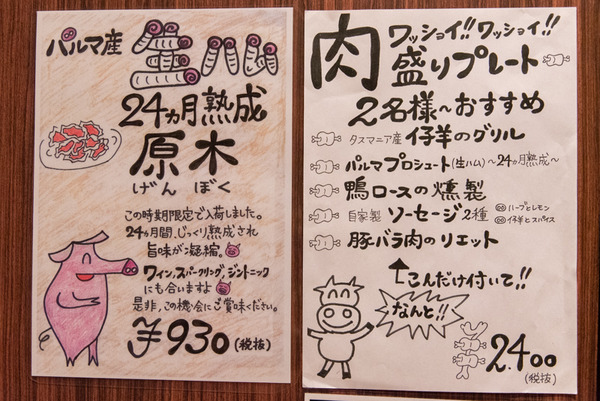 パルマ産 生ハム
24ヵ月熟成
原木
げん ぼく
この時期限定で入荷しました。
24ヵ月間、じっくり熟成され
旨味が凝縮。
ワイン、スパークリング、ジントニック
にも合いますよ
是非、この機会にご賞味ください。
¥930(税抜)
ワッショイ!!ワッショイ!!
肉盛りプレート
2名様~おすすめ
タスマニア産 仔羊のグリル
パルマプロシュート(生ハム)~24ヵ月熟成~
鴨ロースの燻製
自家製 ソーセージ2種 ハーブとレモン
仔羊とスパイス
豚バラ肉のリエット
↑こんだけ付いて!!
なんと!!
2,400
(税抜)